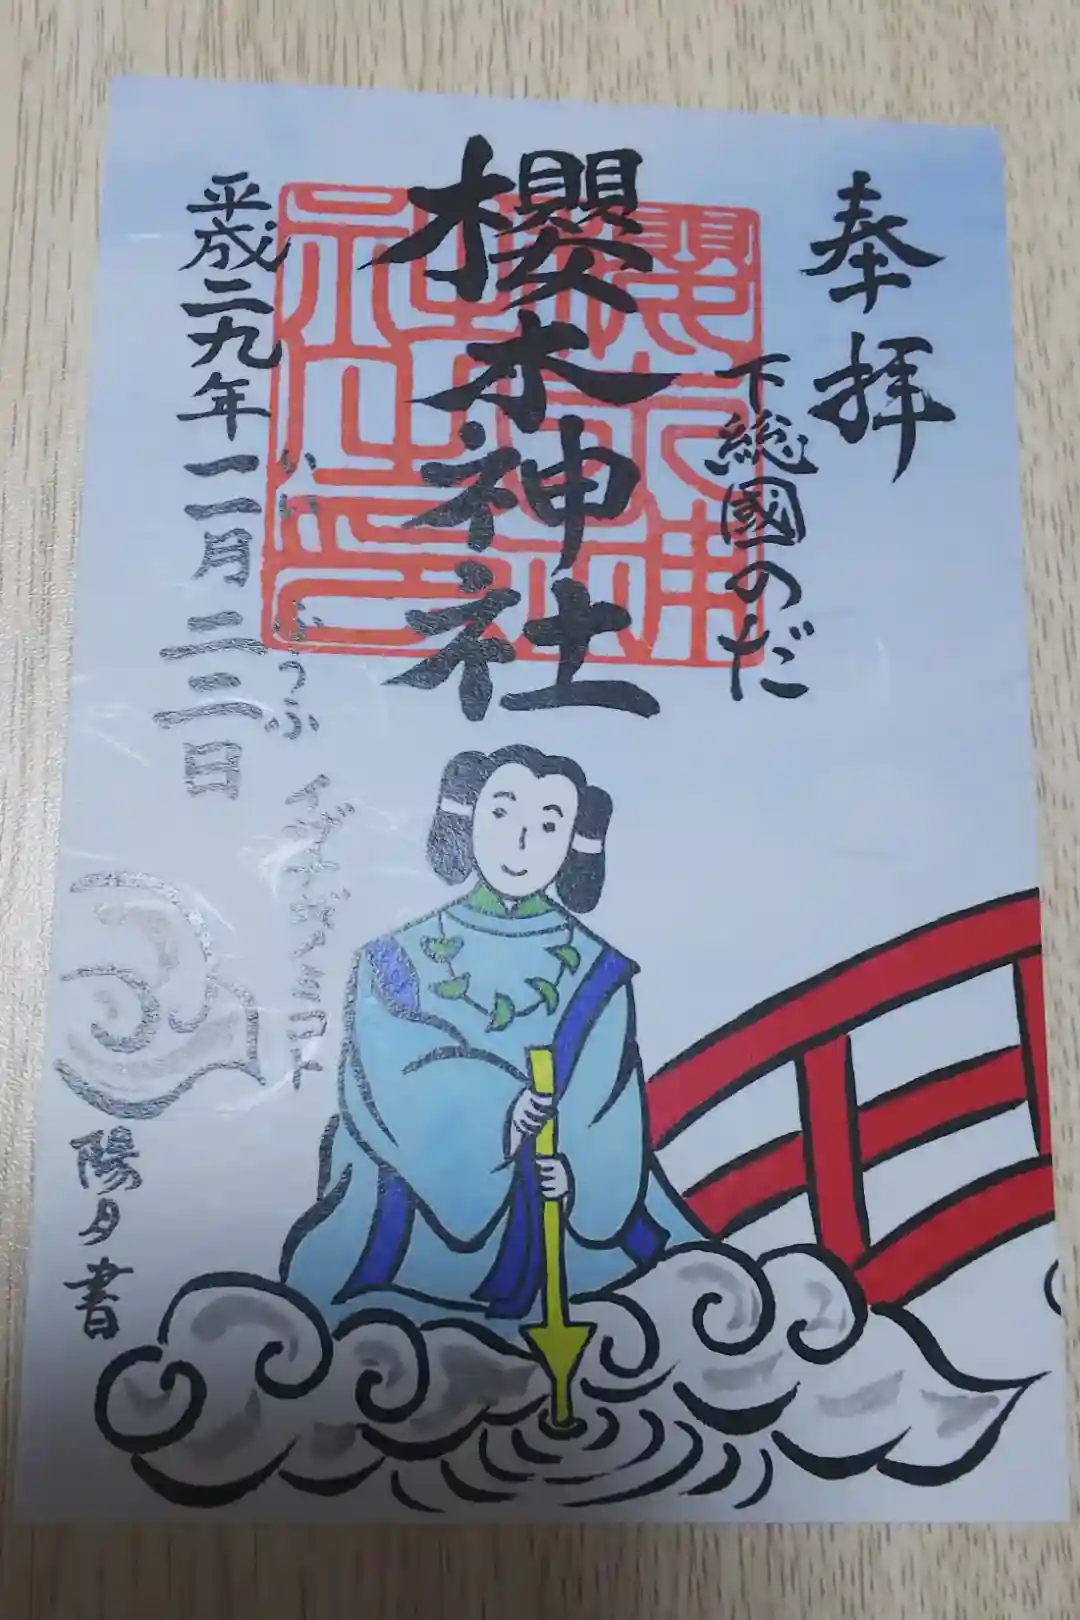 奉拝
下総國のだ
櫻木神社
いい ふうふ イザナギノミコト
平成二九年一一月二二日
陽夕書